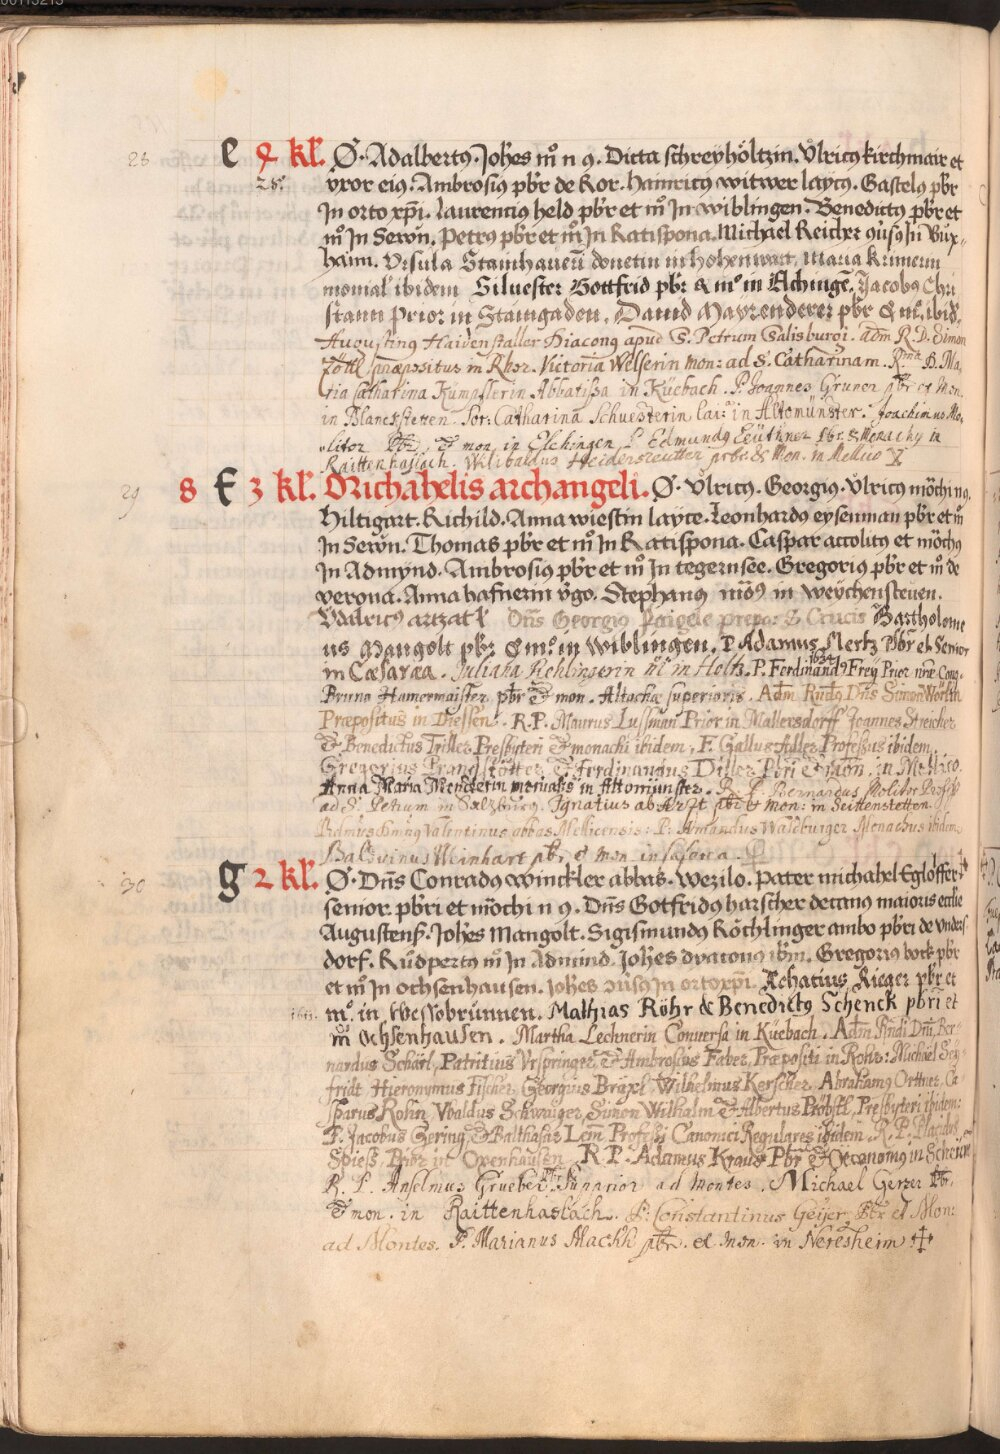 28 e 4 kl. Ø. Adalbertꝰ. Joh̃es m̊ n ꝯ. Dicta schreyhöltzin. Vlricꝰ kirchmair et
28. vxor eiꝰ. Ambrosiꝰ pb̃r de Ror. Hainricꝰ witwer laycꝰ. Gastelꝰ pb̃r
Jn orto xp̃i. Laurenciꝰ held pb̃r et m̊ Jn wiblingen. Benedictꝰ pb̃r et
m̊ Jn Sewn. Petrꝰ pb̃r et m̊ Jn Ratispona. Michael Reicher Jn Bux-
haim. Vrsula Stainhauerin donetin in hohenwart. Maria
monial' ibidem Siluester Gottfrid pb̃r & m̊. in Elchingẽ. Jacobꝰ Chri
stann Prior in Staingaden. Dauid Mayrenderer pb̃r & m̊. ibid̃.
Augustinꝰ Haidenstaller Diaconꝰ apud S. Petrum Salisburgi. adm R. D. Simon
Zöttl præpositus in Rhor. Victoria Welserin mon: ad S. Catharinam. R.ma D. Ma
ria Catharina Kumpflerin Abbatissa in Kücbach. P. Joannes Gruner pb̃r et Mon.
in Blanckstetten. Sor: Catharina Schuesterin lai: in Altomünster. Joachimus Mo-
litor Pb̃r. & mon. in Elchingen P. Edmundꝰ Leüthner Pbr. & Monachꝰ in
Raittenhaslach. Wilibaldus Heidersreutter prbr. & Mon. in Mellico
29 8 f 3 kl. Michahelis archangeli. Ø. Vlricꝰ. Georgiꝰ. Vlricꝰ möchi n ꝯ.
Hiltigart. Richild. Anna wiestin layce. Leonhardꝰ eysenman pb̃r et m̊
Jn Sewn. Thomas pb̃r et m̊ Jn Ratispona. Caspar accolitꝰ et mõchꝰ
Jn Admynd. Ambrosiꝰ pb̃r et m̊ Jn tegernsee. Gregoriꝰ pb̃r et m̊ de
verona. Anna hafnerin v̊go. Stephanꝰ mõꝰ in weychensteuen.
Vdalricꝰ artzat Dñs Georgiꝰ Paigele prepoꝰ: S. Crucis Bartholome
us Mangolt pb̃r & m̊. in wiblingen. P. Adamus Mertz Pbr̃ et Senior
in Cæsarea. Juliana Rehlingerin in Holtz. P. Ferdinandꝰ Frey Prior nr̃æ Cong.
1634
Bruno Hamermaister pb̃r & mon. Altachæ superioris. Adm̃ Rndꝰ Dñs Simon Wörlin
Præpositus in Diessen. R. P. Maurus Lussman Prior in Mallersdorff Joannes Streicher
& Benedictus Triller Presbyteri & monachi ibidem, F. Gallus Adler Professus ibidem.
Gregorius Prandstötter, & Ferdinandus Diller Pbri & mon. in Mellico.
Anna Maria Menckerin monialis in Altomünster. R. P. Bernardus Molitor Profess
ad S. Petrum in Saltzburg. Ignatius ab Arzt pbr & mon: in Seittenstetten.
Rdmus Dm̃nꝰ Valentinus abbas Mellicensis. P. Amandus Waldburger Monachus ibidem.
Balduinus Weinhart pbr. & mon. in
30 g 2 kl. Ø. Dñs Conradꝰ winckler abbas. Wezilo. Pater michahel Eglöffer
senior. pbr̃i et mõchi n ꝯ. Dñs Gotfridꝰ harscher decanꝰ maioris eccl̃ie
Augustenṡ. Joh̃es Mangolt. Sigismundꝰ Röchlinger ambo pbr̃i de Vnders-
dorf. Rudpertꝰ m̊ Jn Admund. Joh̃es ibm̃. Gregoriꝰ bock pb̃r
et m̊ Jn ochsenhausen. Joh̃es Jn ortoxp̃i. Achatius Rieger pb̃r et
1611. m̊. in Wessobrunnen. Mathias Röhr & Benedictꝰ Schenck pbri et
m̊ Ochsenhausen. Martha Lechnerin Conversa in Kuebach. Adm̃ Rñdi Dñi Ber-
nardus Schärl, Patritius Vrspringer, & Ambrosius Faber, Præpositi in Rohr: Michael Sey
fridt Hieronymus Fischer, Georgius Bräxl, Wilhelmus Kerscher, Abrahamꝰ Orttner, Ca
sparus Rohn, Vbaldus Schwaiger, Simon Wilhalm & Albertus Pröbstl, Presbyteri ibidem:
F. Jacobus Gering, & Balthasar Lem̃ Professi Canonici Regulares ibidem. R. P. Placidus
Spiess Prior in Oxenhausen. R. P. Adamus Kraus Pbr & Oeconomꝰ in Scheirn
R. P. Anselmus Grueber Pbr. ad Montes. Michael Gerzer Pbr.
& mon. in Raittenhaslach. P. Constantinus Geyer Pbr et Mon:
ad Montes. P. Marianus Mackh pbr. et Mon. in Neresheim